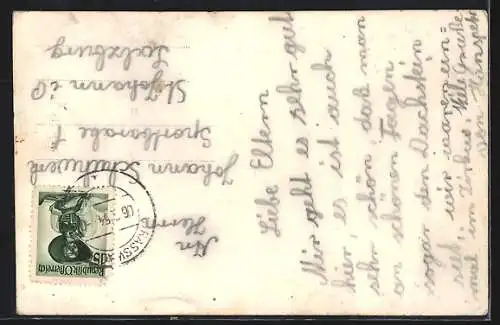 Liebe Eltern
Mir geht es sehr gut
hier, es ist auch
sehr schön, daß man
an schönen Tagen
sogar den Dachstein
sieht, wir waren ein-
mal im Zirkus. Viele Grüße
von
An
Herrn
Johann
Sportbaracke 1
St. Johann i. P
Salzburg
Republik Österreich